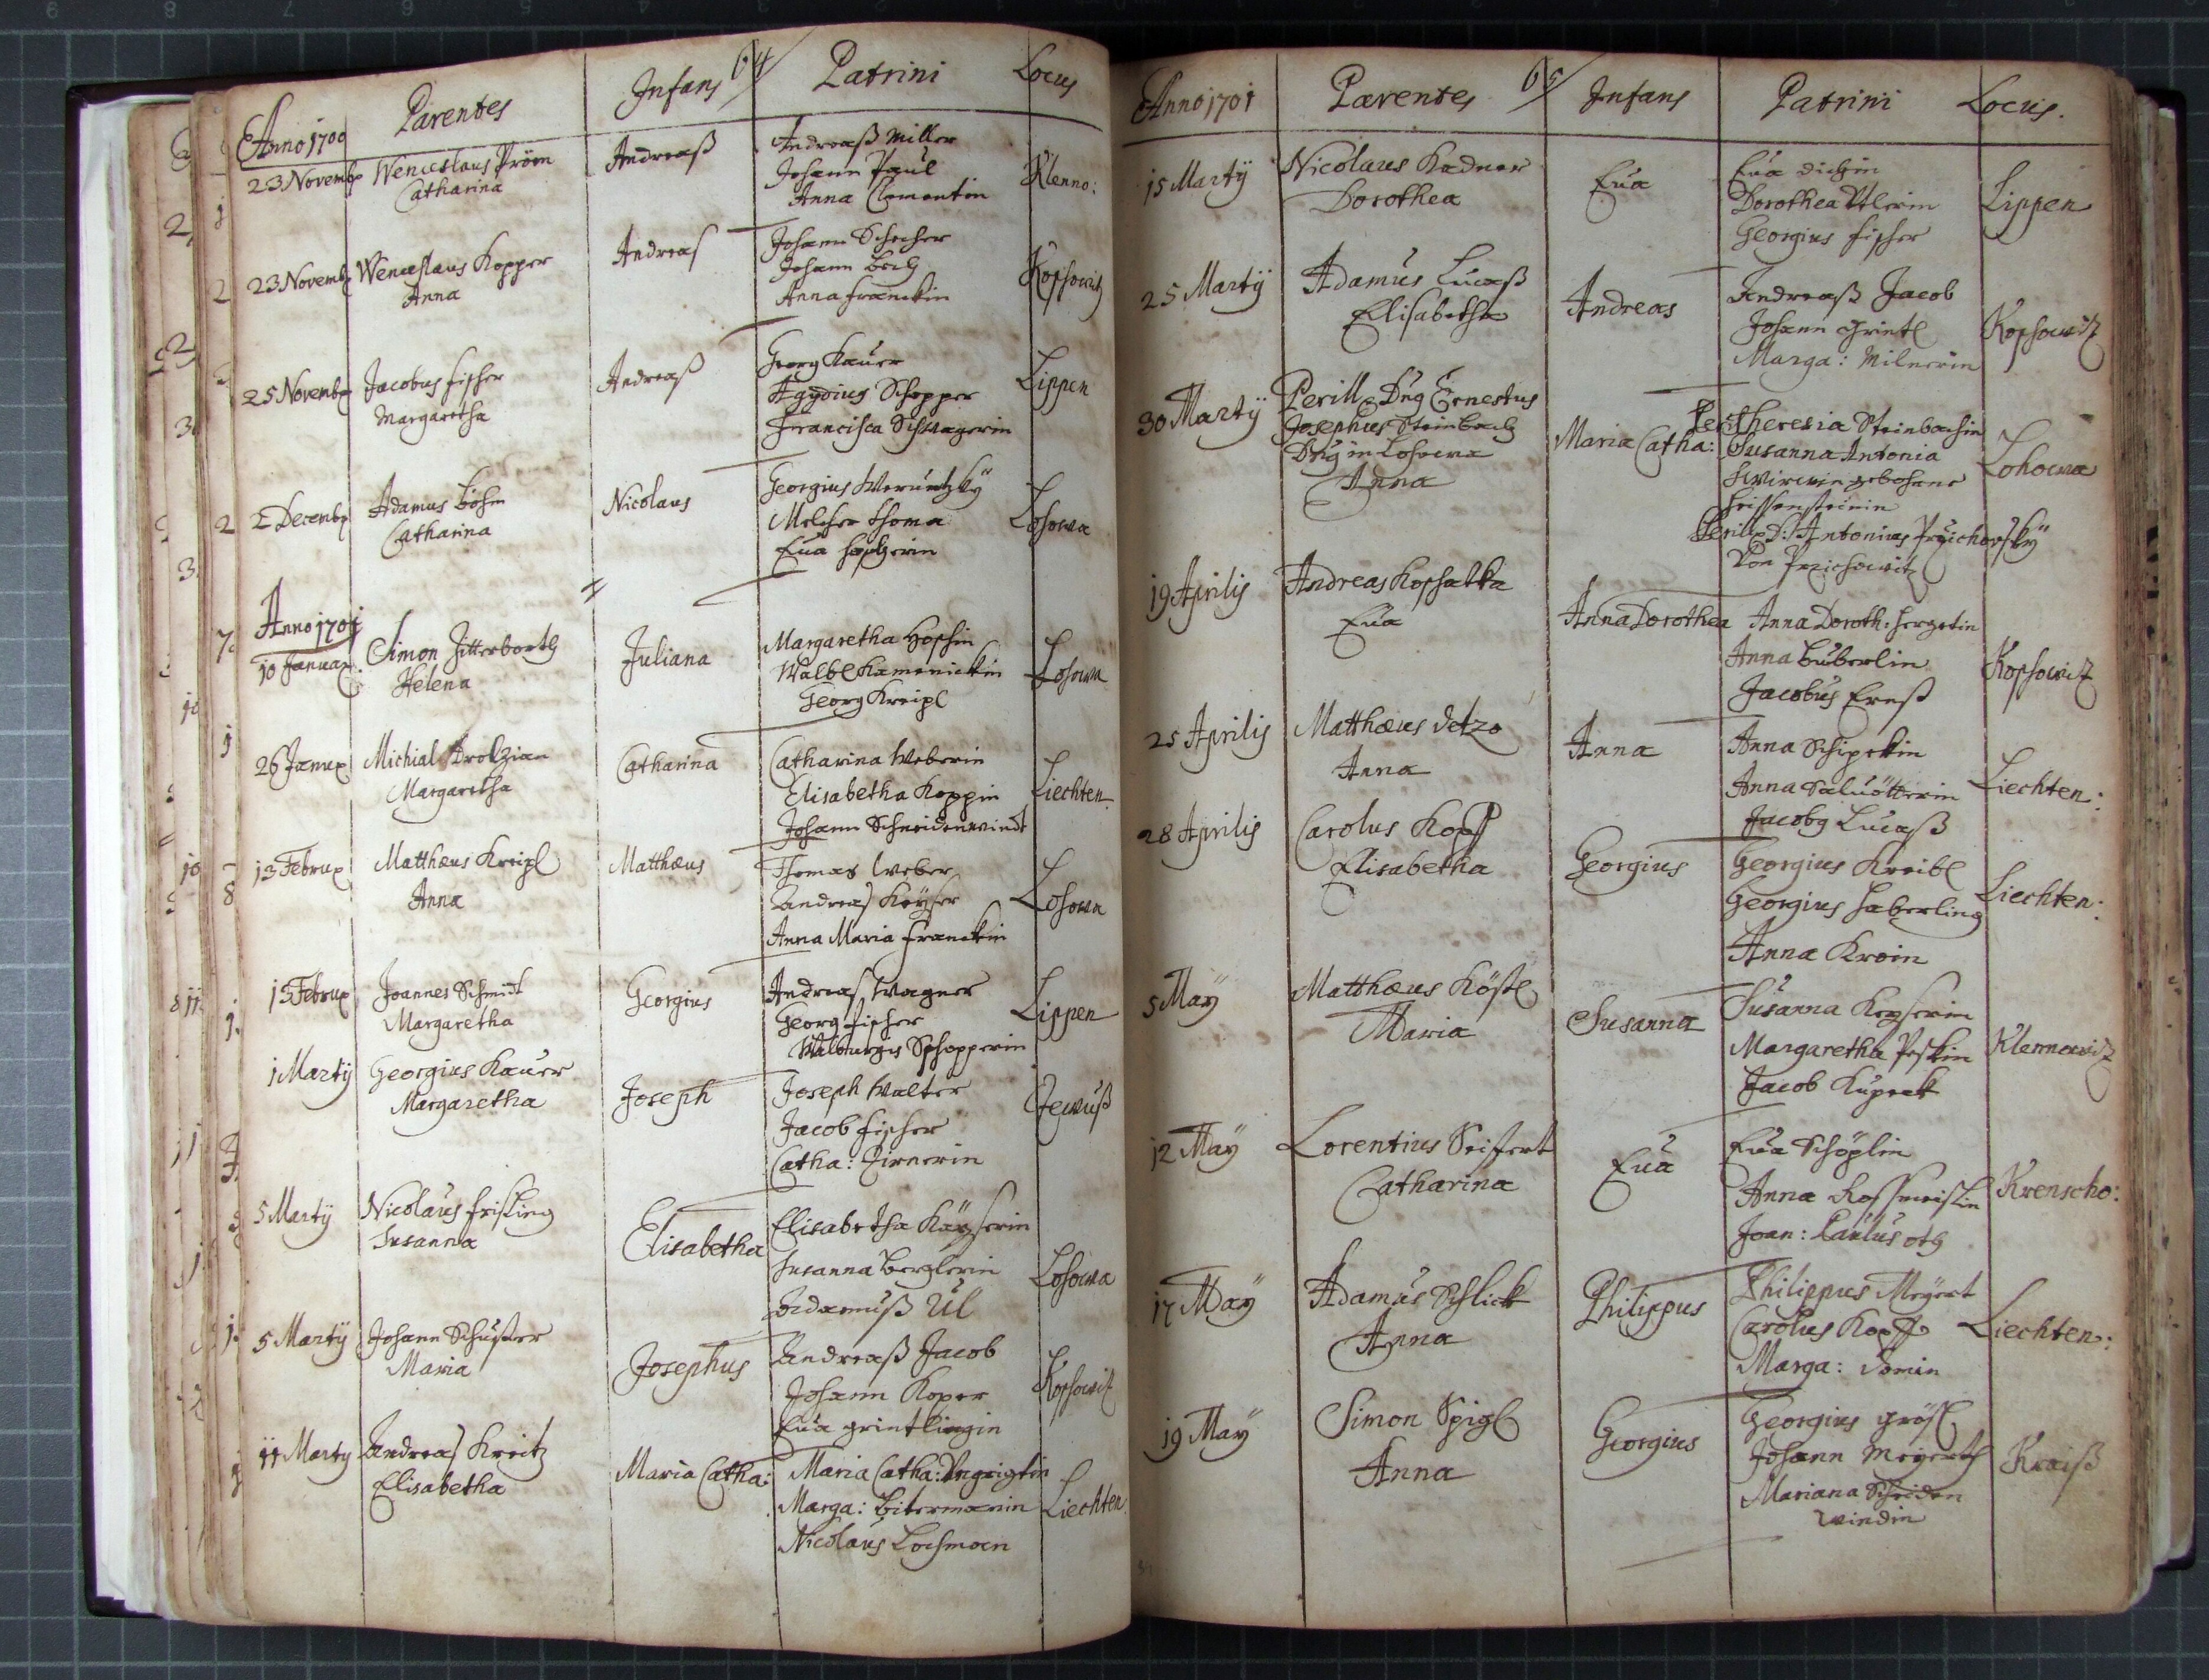 64
Anno 1700
Parentes
Infans
Patrini
Locus
23 Novemb
Wenceslaus Pröm
Catharina
Andreaß
Andreaß Miller
Johann Paul
Anna Clementin
Klenno:
23 Novemb
Wenceslaus Kopper
Anna
Andreas
Johann Schecher
Johann Bech
Anna Franckin
Kopsowitz
25 Novemb
Jacobus Fischer
Margaretha
Andreaß
Georg Kauer
Ægydius Schopper
Francisca Schwagerin
Lippen
2 Decemb
Adamus Böhm
Catharina
Nicolaus
Georgius Weruntzky
Melcher Thoma
Eua
Lohowa
Anno 1701
10 Januar:
Simon Zitterbarth
Helena
Juliana
Margaretha Hopfin
Walbl Kamenickin
Georg Kreipl
Lohowa
26 Janu
Michial
Margaretha
Catharina
Catharina Weberin
Elisabetha Koppin
Johann Schneidenwindt
Liechten:
13 Febru
Matthæus Kreipl
Anna
Matthæus
Thomas Weber
Andreas Keyser
Anna Maria Franckin
Lohowa
15 Febru
Joannes Schmidt
Margaretha
Georgius
Andreas Wagner
Georg Fischer
Walburgis Schopperin
Lippen
1 Martÿ
Georgius Kauer
Margaretha
Joseph
Joseph Walter
Jacob Fischer
Catha: Zirnerin
Jewuß
5 Martÿ
Nicolaus Frisling
Susanna
Elisabetha
Elisabetha Kayserin
Susanna Berglerin
Adamuß Ul
Lohowa
5 Martÿ
Johann Schuster
Maria
Josephus
Andreaß Jacob
Johann Koper
Eua Grintlingin
Kopsowitz
11 Marty
Andreas Kreitz
Elisabetha
Maria Catha:
Maria Catha:
Marga: Bitermanin
Nicolaus Lochman
Liechten:
65
Anno 1701
Parentes
Infans
Patrini
Locus.
15 Martÿ
Nicolaus Kadner
Dorothea
Eua
Eua
Dorothea
Georgius Fischer
Lippen
25 Martÿ
Adamus Lucaß
Elisabetha
Andreas
Andreaß Jacob
Johann Grintl
Marga: Milnerin
Kopsowitz
30 Martÿ
Perill. Dng Ernestus
Josephus Steinbach
Dng in Lohowa
Anna
Maria Catha:
Theresia Steinbachin
Susanna Antonia
gebohane
Perill. D: Antonius
Von
Lohowa
19 Aprilis
Andreas Kopsatka
Eua
Anna Dorothea
Anna Doroth: Hergetin
Anna Buberlin
Jacobus Ernst
Kopsowitz
25 Aprilis
Matthæus Vetzo
Anna
Anna
Anna Schipekin
Anna
Jacobg Lucaß
Liechten:
28 Aprilis
Carolus Kopff
Elisabetha
Georgius
Georgius Kreibl
Georgius Haberling
Anna Kroin
Liechten:
5 Maÿ
Matthæus Köstl
Maria
Susanna
Susanna Keyserin
Margaretha Peskin
Jacob Kupeck
Klennowitz
12 Maÿ
Lorentius Seifert
Catharina
Eua
Eua Schöplin
Anna
Joan: Paulus Oth
Krenscho:
17 Maÿ
Adamus Schlick
Anna
Philippus
Philippus Meyert
Carolus Kopff
Marga:
Liechten:
19 Maÿ
Simon Spigl
Anna
Georgius
Georgius Gröschl
Johann Meyerth
Mariana Schneiden
windin
Kraiß